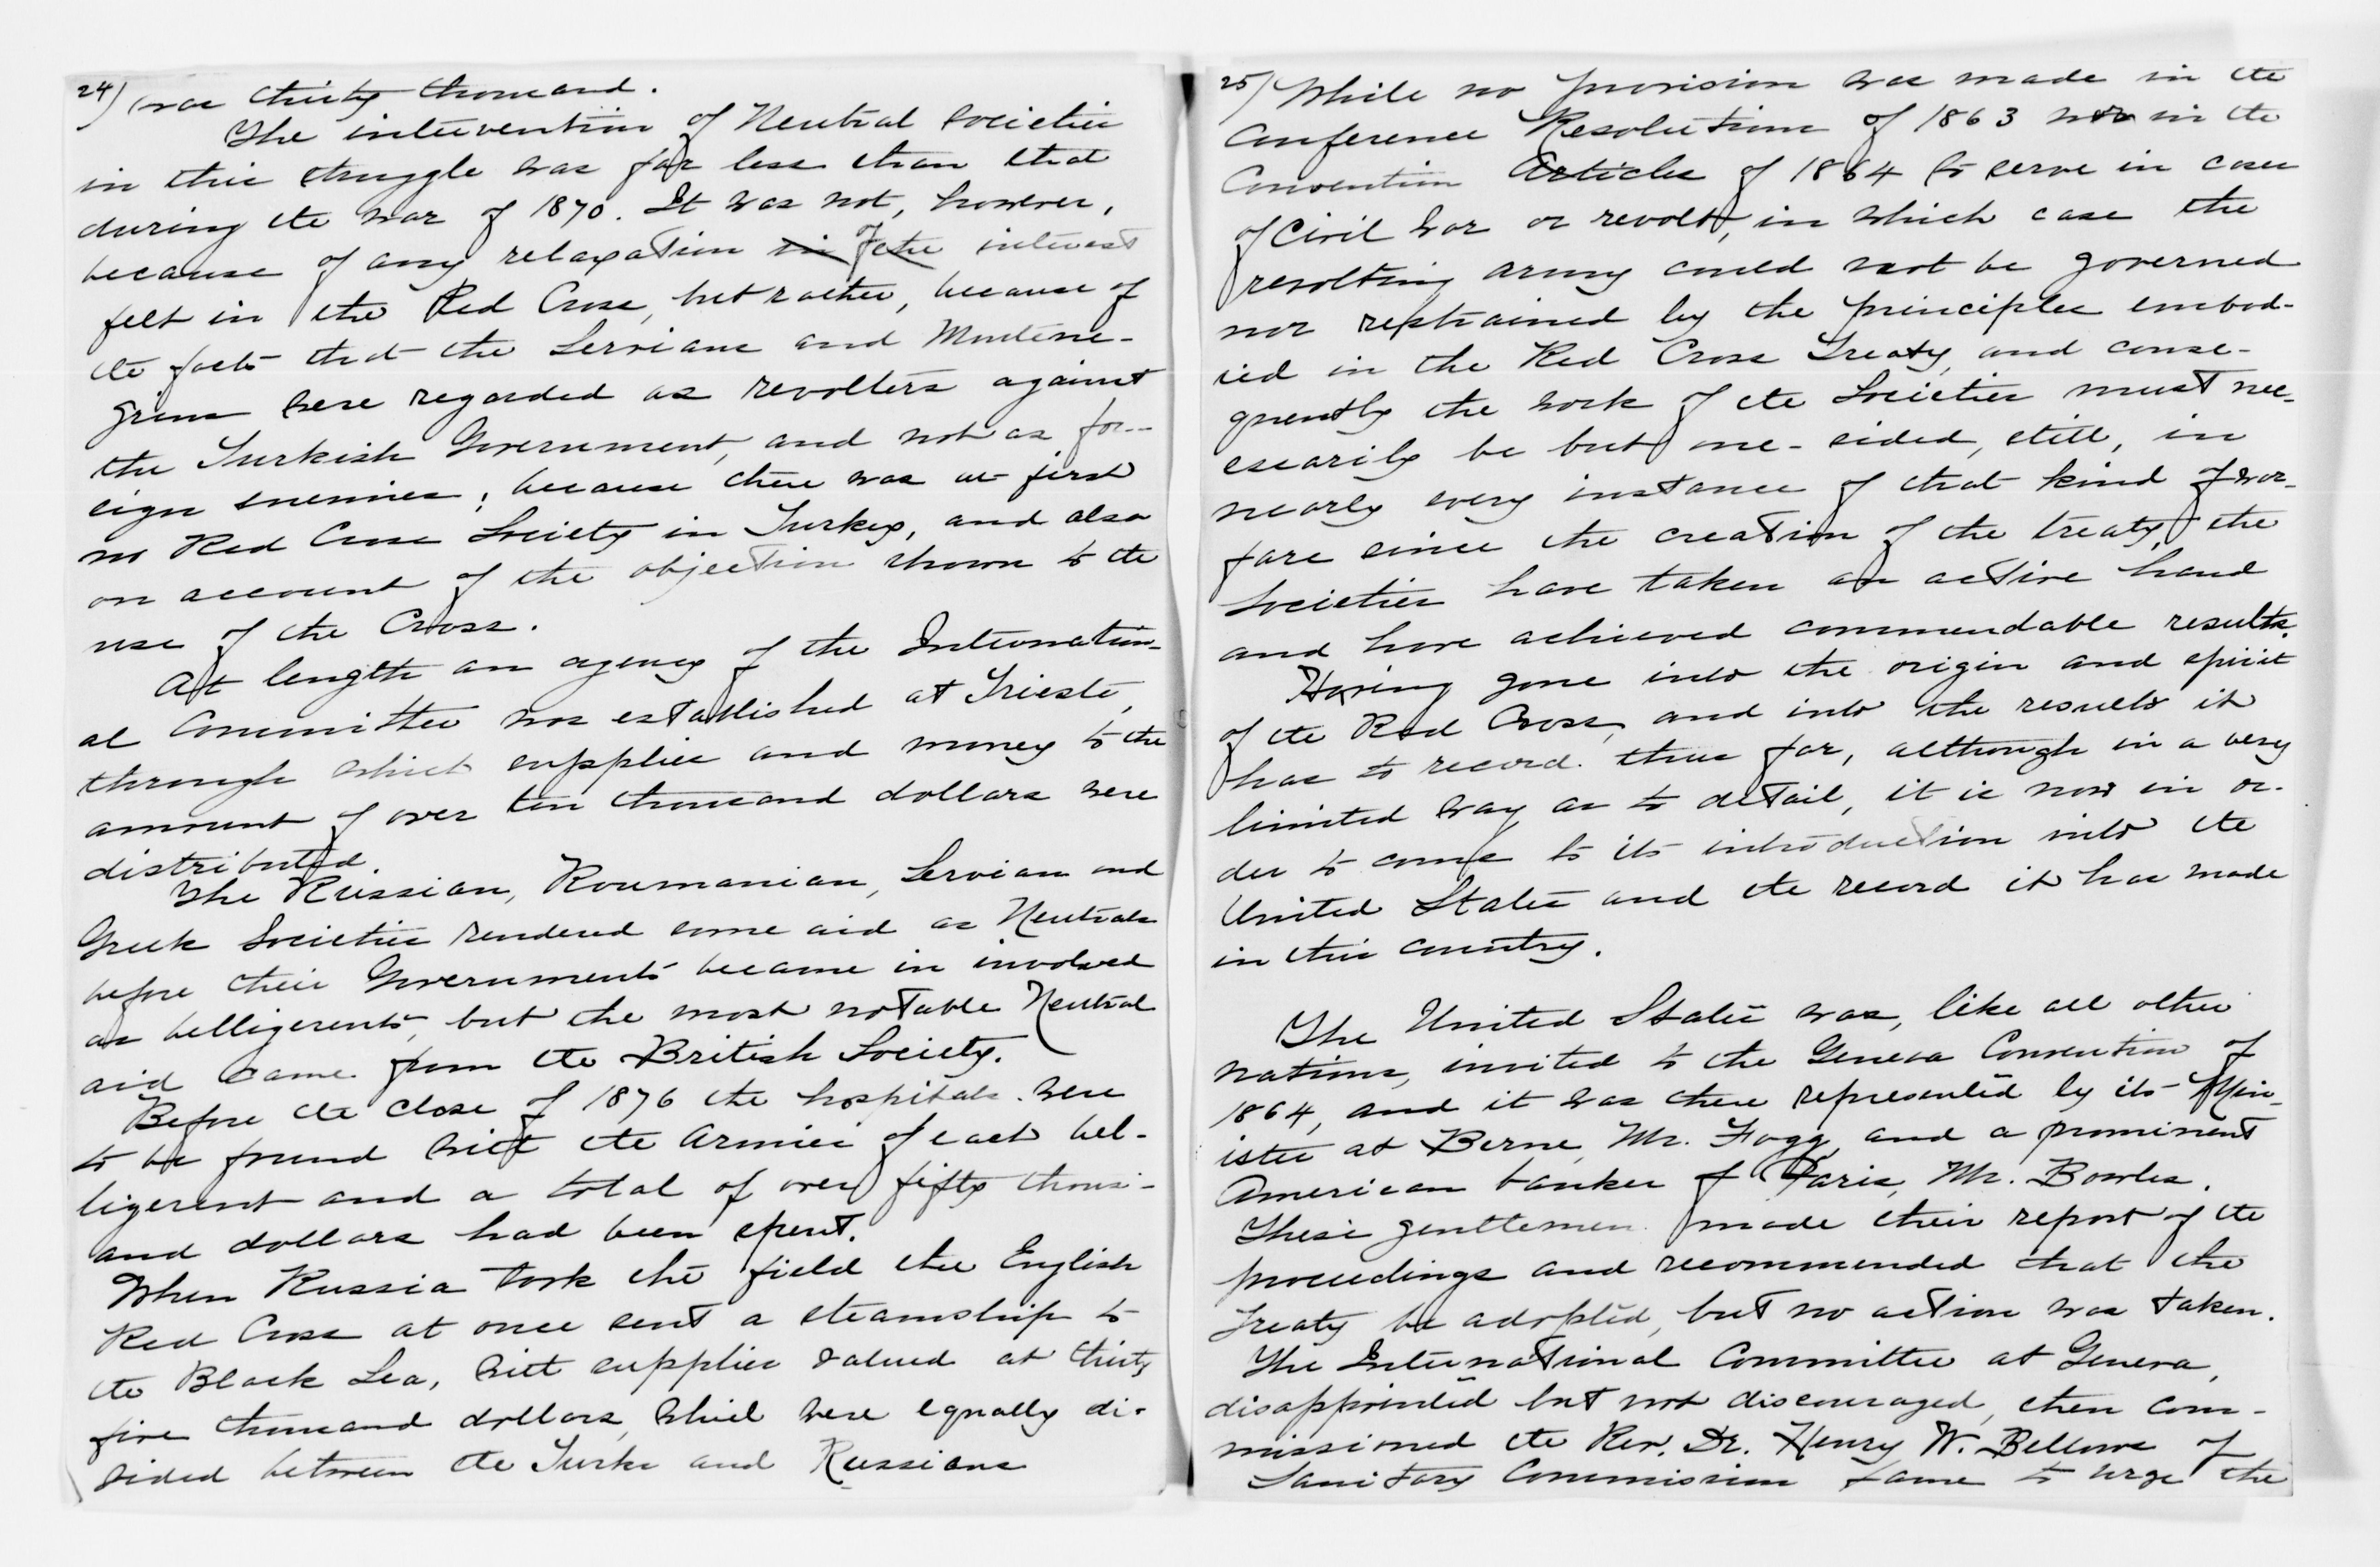 24) was thirty thousand.
The intervention of Neutral Societies
in this struggle was far less than that
during the war of 1870. It was not, however,
because of any relaxation in of the interest
felt in the Red Cross, but rather, because of
the facts that the Servians and Montene-
grins were regarded as revolters against
the Turkish Government, and not as for-
eign enemies; because there was at first
no Red Cross Society in Turkey, and also
on account of the objection shown to the
use of the Cross.
At length an agency of the Internation-
al Committee was established at Trieste,
through which supplies and money to the
amount of over ten thousand dollars were
distributed.
The Russian, Roumanian, Servian and
Greek Societies rendered some aid as Neutrals
before their Governments became in involved
as belligerents, but the most notable Neutral
aid came from the British Society.
Before the close of 1876 the hospitals were
to be found with the Armies of each bel-
ligerent and a total of over fifty thous-
and dollars had been spent.
When Russia took the field the English
Red Cross at once sent a steamship to
the Black Sea, with supplies valued at thirty
five thousand dollars, which were equally di-
vided between the Turks and Russians
25) While no provision was made in the
Conference Resolutions of 1863 nor in the
Convention Articles of 1864 to serve in cases
of Civil War or revolt, in which case the
revolting army could not be governed
nor restrained by the principles embod-
ied in the Red Cross Treaty, and conse-
quently the work of the Societies must nec-
essarily be but one-sided, still, in
nearly every instance of that kind of war-
fare since the creation of the treaty, the
Societies have taken an active hand
and have achieved commendable results.
Having gone into the origin and spirit
of the Red Cross, and into the results it
has to record thus far, although in a very
limited way as to detail, it is now in or-
der to come to its introduction into the
United States and the record it has made
in this country.
The United States was, like all other
nations, invited to the Geneva Convention of
1864, and it was there represented by its Min-
ister at Berne, Mr. Fogg, and a prominent
American banker of Paris, Mr. Bowles.
These gentlemen made their report of the
proceedings and recommended that the
Treaty be adopted, but no action was taken.
The International Committee at Geneva,
disappointed but not discouraged, then com-
missioned the Rev. Dr. Henry W. Bellows of
Sanitary Commission fame to urge the